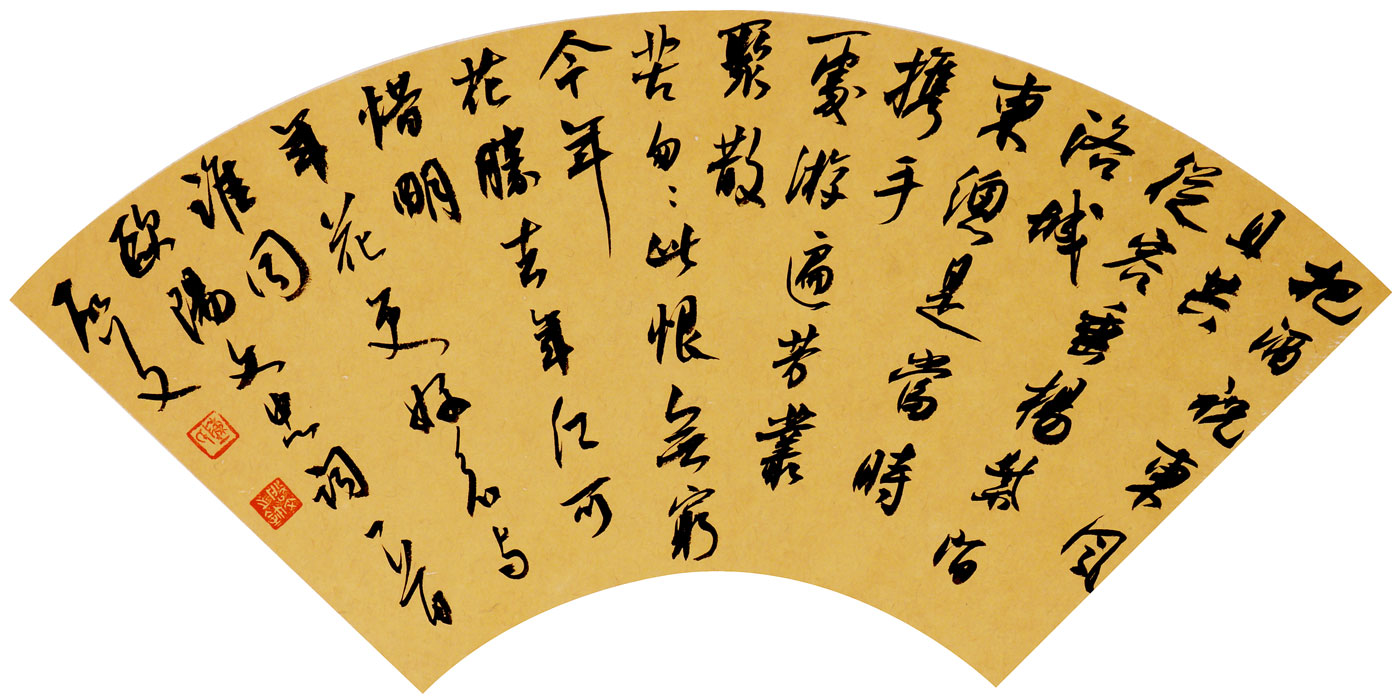 把酒祝東風
且共
從容垂楊紫陌
洛城
東總是當時
攜手
處游遍芳叢
聚散
苦匆〻此恨無窮
今年
花勝去年紅可
惜明
年花更好知與
誰同
歐陽文忠詞一首